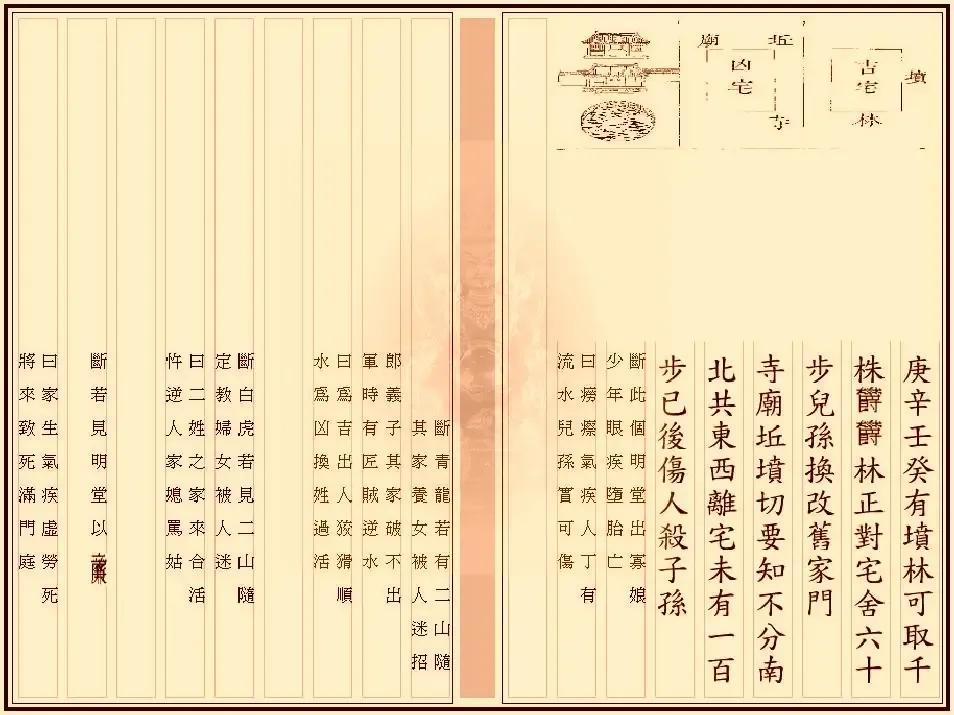 墳
吉宅
林
坵
廟
凶宅
寺
庚辛壬癸有墳林可取千
株欝欝林正對宅舍六十
步兒孫換改舊家門
寺廟坵墳切要知不分南
北共東西離宅未有一百
步已後傷人殺子孫
斷此個明堂出寡娘
少年眼疾墮胎亡
曰癆瘵氣疾人丁有
流水兒孫實可傷
斷青龍若有二山隨
其家養女被人迷招
郎義子其家破不出
軍時有匠賊逆水
曰爲吉出人狡猾順
水爲凶換姓過活
斷白虎若見二山隨
定教婦女被人迷
曰二姓之家來合活
忤逆人家媳罵姑
斷若見明堂以
曰家生氣疾虛勞死
將來致死滿門庭